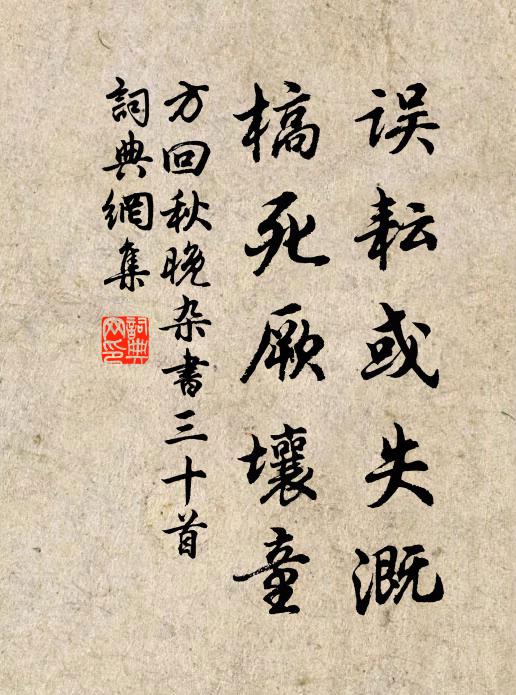 误耘或失溉
槁死厥壤童
方回秋晚杂书三十首
詞典網集
詞典網印